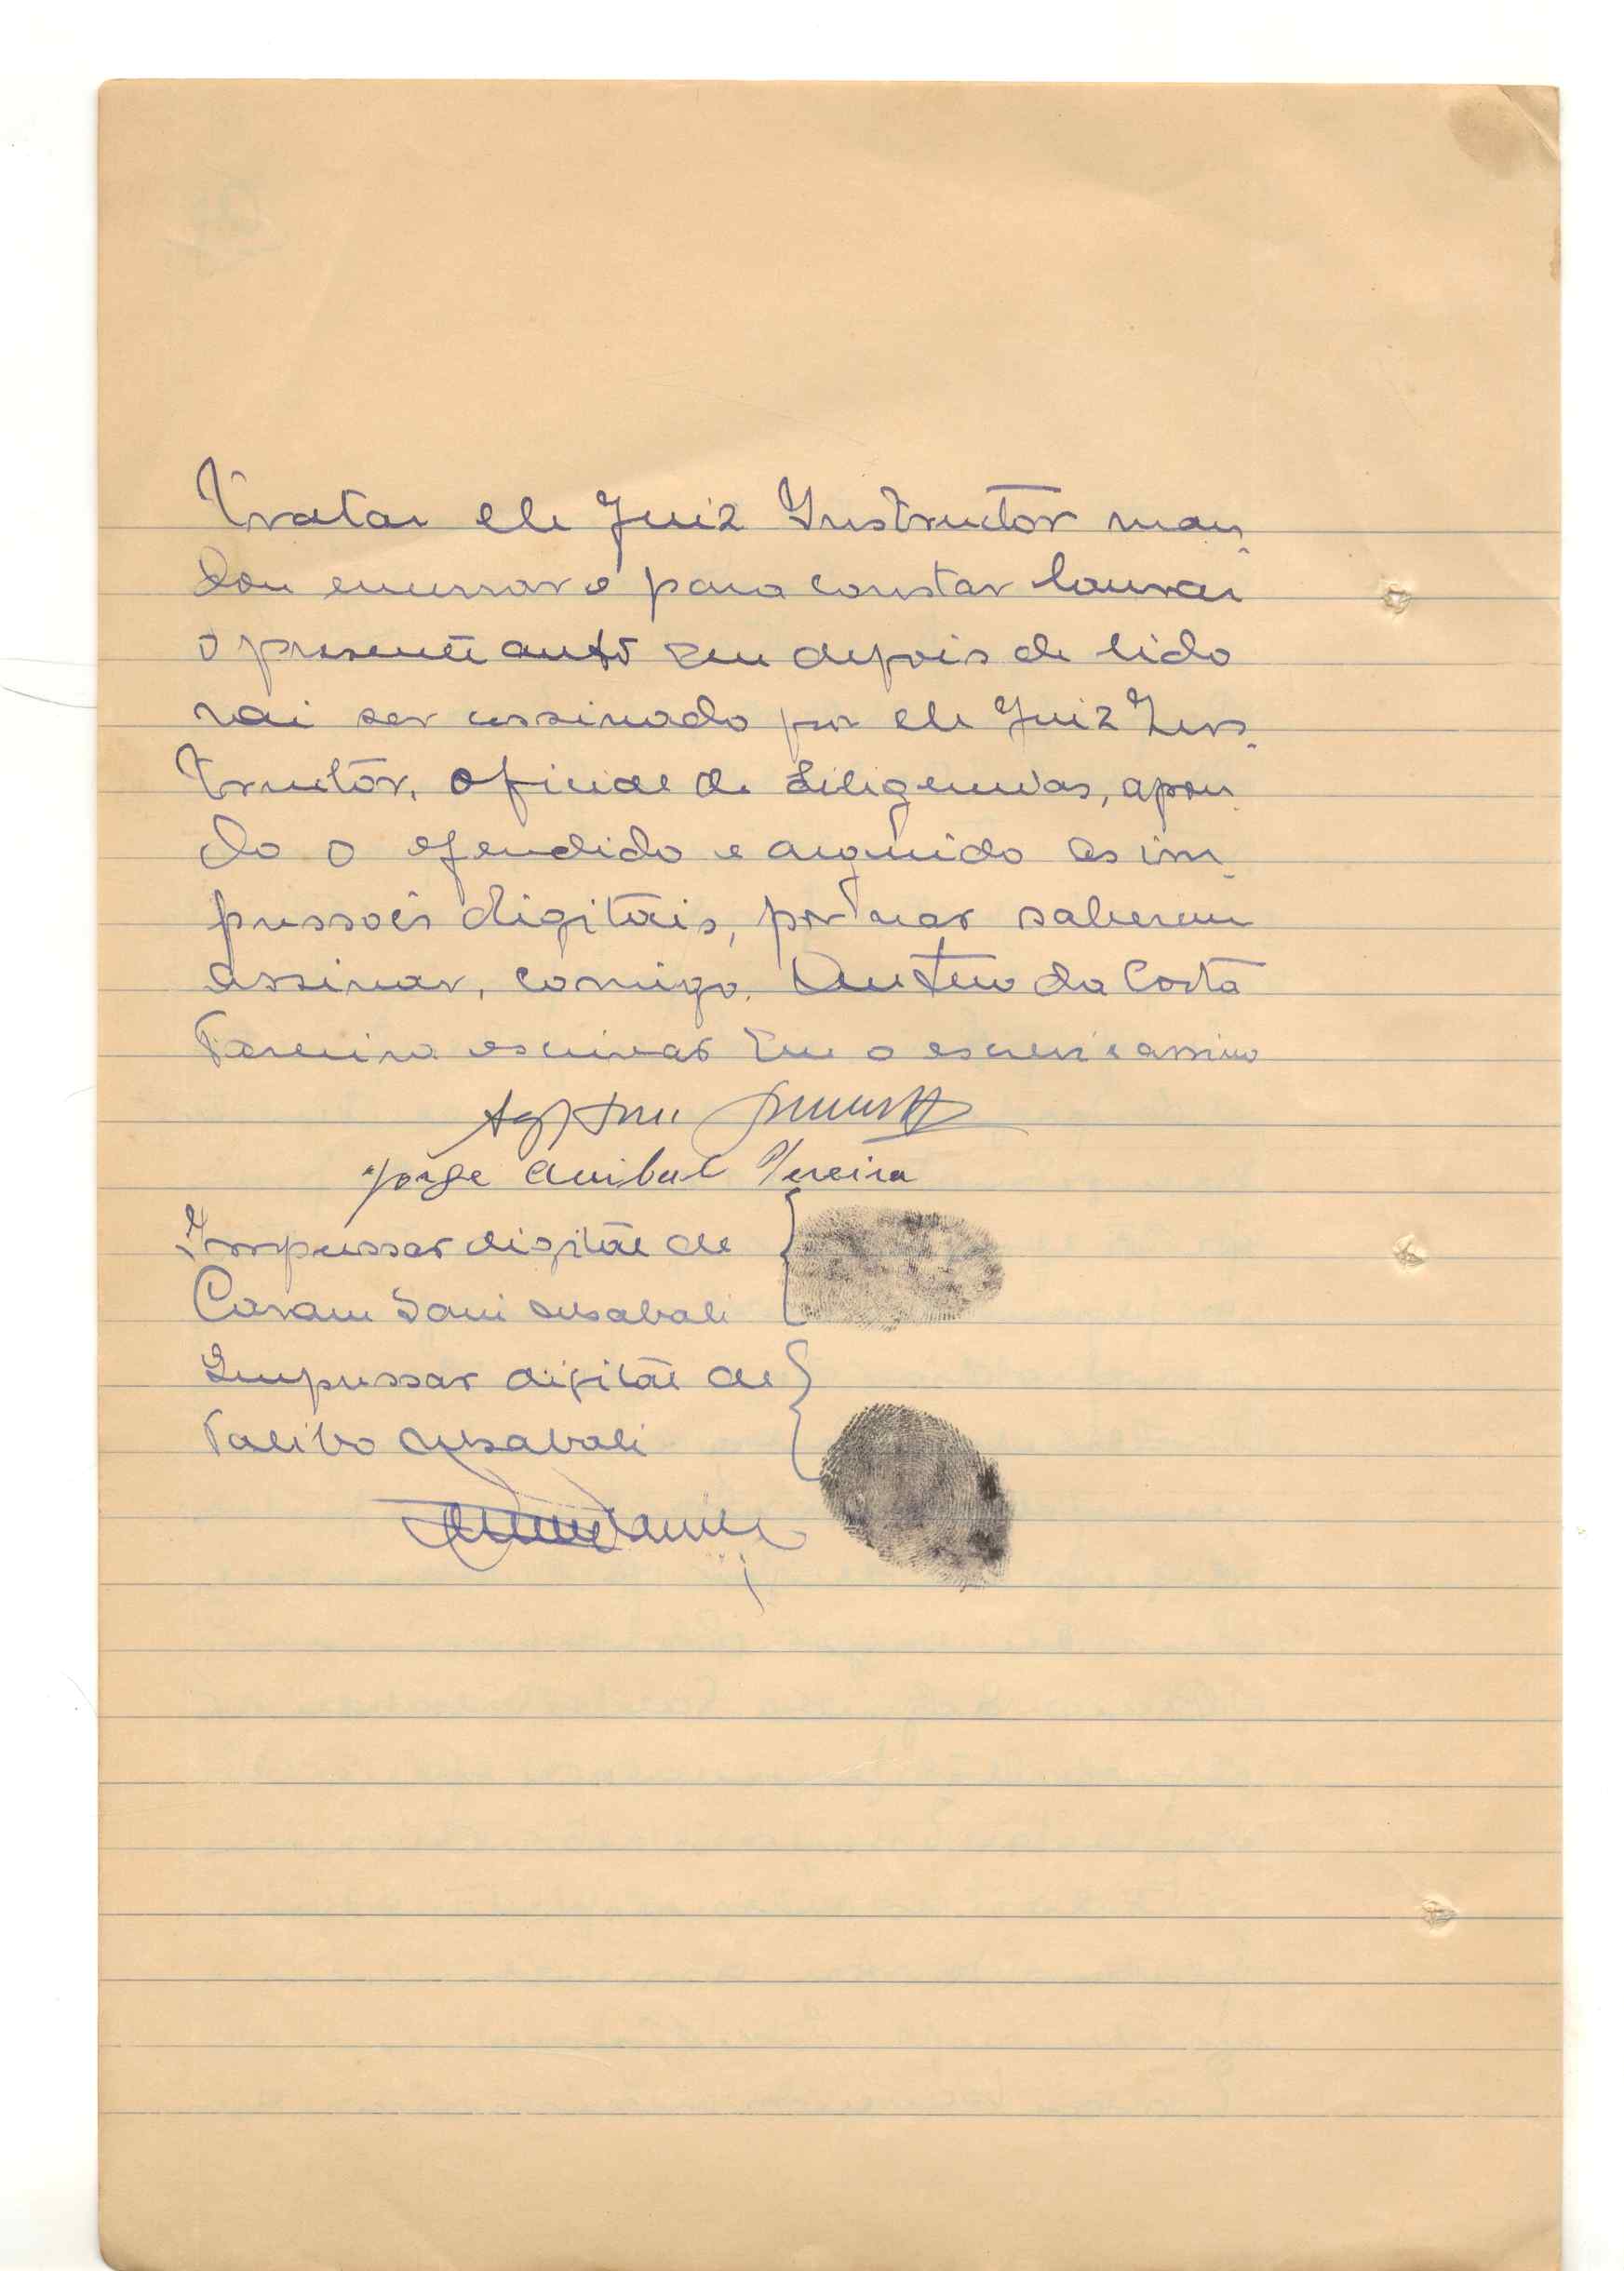 tratar ele Juiz Instructor man-
dou encerrar e para constar lavrar
o presente auto que depois de lido
vai ser assinado por ele Juiz Ins-
tructôr, oficial de diligencias, apon-
do o ofendido e arguido as im-
pressoês digitais, por nao saberem
assinar, comigo. da Costa
escrivao que o escrevi e assino
Jorge Anibal Pereira
Impressao digital de
Caram Sani
Impressao digital de
Talibo